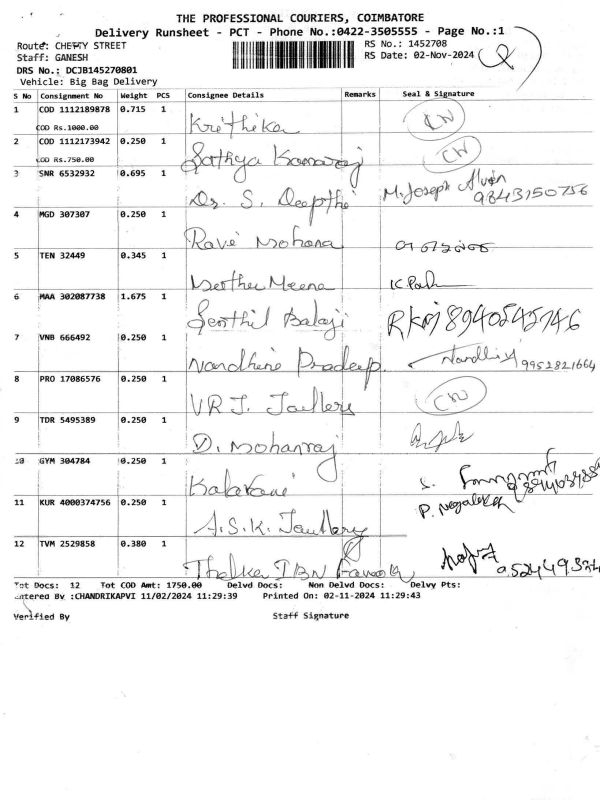 THE PROFESSIONAL COURIERS, COIMBATORE
Delivery Runsheet - PCT - Phone No.:0422-3505555 - Page No.:1
Route: CHETTY STREET RS No.: 1452708
Staff: GANESH RS Date: 02-Nov-2024
DRS No.: DCJB145270801
Vehicle: Big Bag Delivery
S No Consignment No Weight PCS Consignee Details Remarks Seal & Signature
1 COD 1112189878 0.715 1 Krithika CN
COD Rs.1000.00
2 COD 1112173942 0.250 1 Sathya Kamaraj CN
COD Rs.750.00
3 SNR 6532932 0.695 1 Dr. S. Deepthi M. Joseph Alvin
9843150756
4 MGD 307307 0.250 1 Ravi Mohana
5 TEN 32449 0.345 1 Meena
6 MAA 302087738 1.675 1 Senthil Balaji 8940545746
7 VNB 666492 0.250 1 Nandhini Pradeep. 9952821664
8 PRO 17086576 0.250 1 VRJ. CN
9 TDR 5495389 0.250 1 D. Mohanraj
10 GYM 304784 0.250 1
11 KUR 4000374756 0.250 1 A.S.K.
12 TVM 2529858 0.380 1
Tot Docs: 12 Tot COD Amt: 1750.00 Delvd Docs: Non Delvd Docs: Delvy Pts:
Entered By :CHANDRIKAPVI 11/02/2024 11:29:39 Printed On: 02-11-2024 11:29:43
Verified By Staff Signature